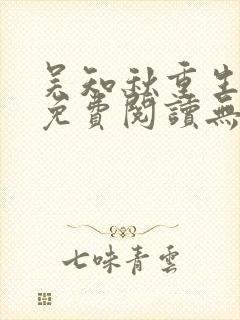 吴知秋重生
免費閱讀無
七味青雲